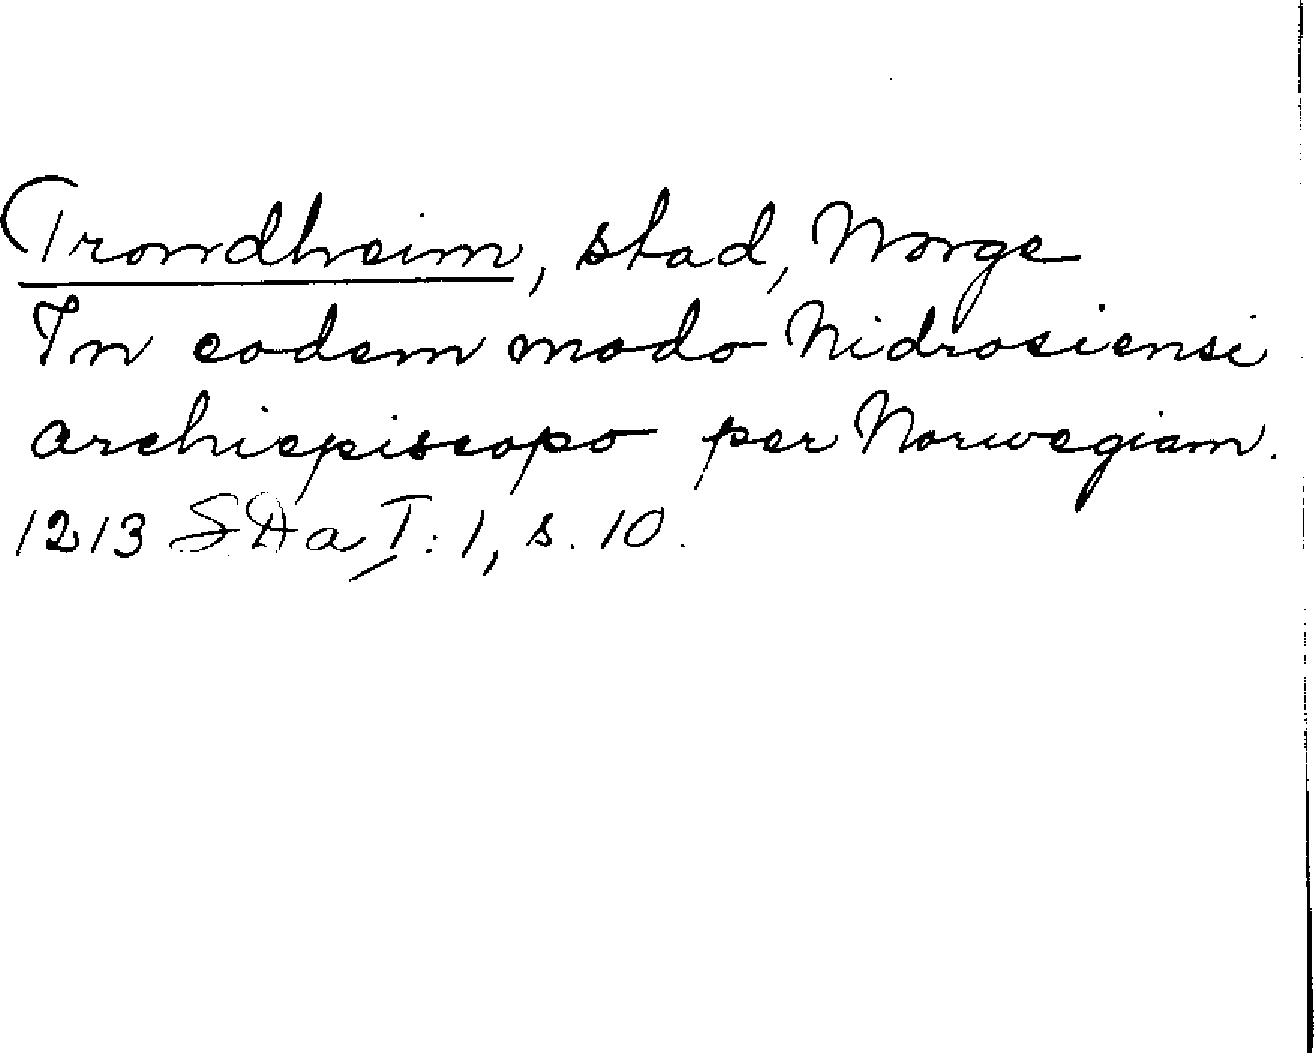 Trondheim, stad, Norge
In eodem modo Nidrosiensi
archiepiscopo per Norwegiam.
1213 SDa I:1, s. 10.